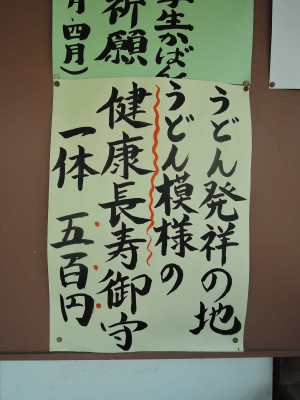 学生かばん
祈願
月・四月）
うどん発祥の地
うどん模様の
健康長寿御守
一体 五百円